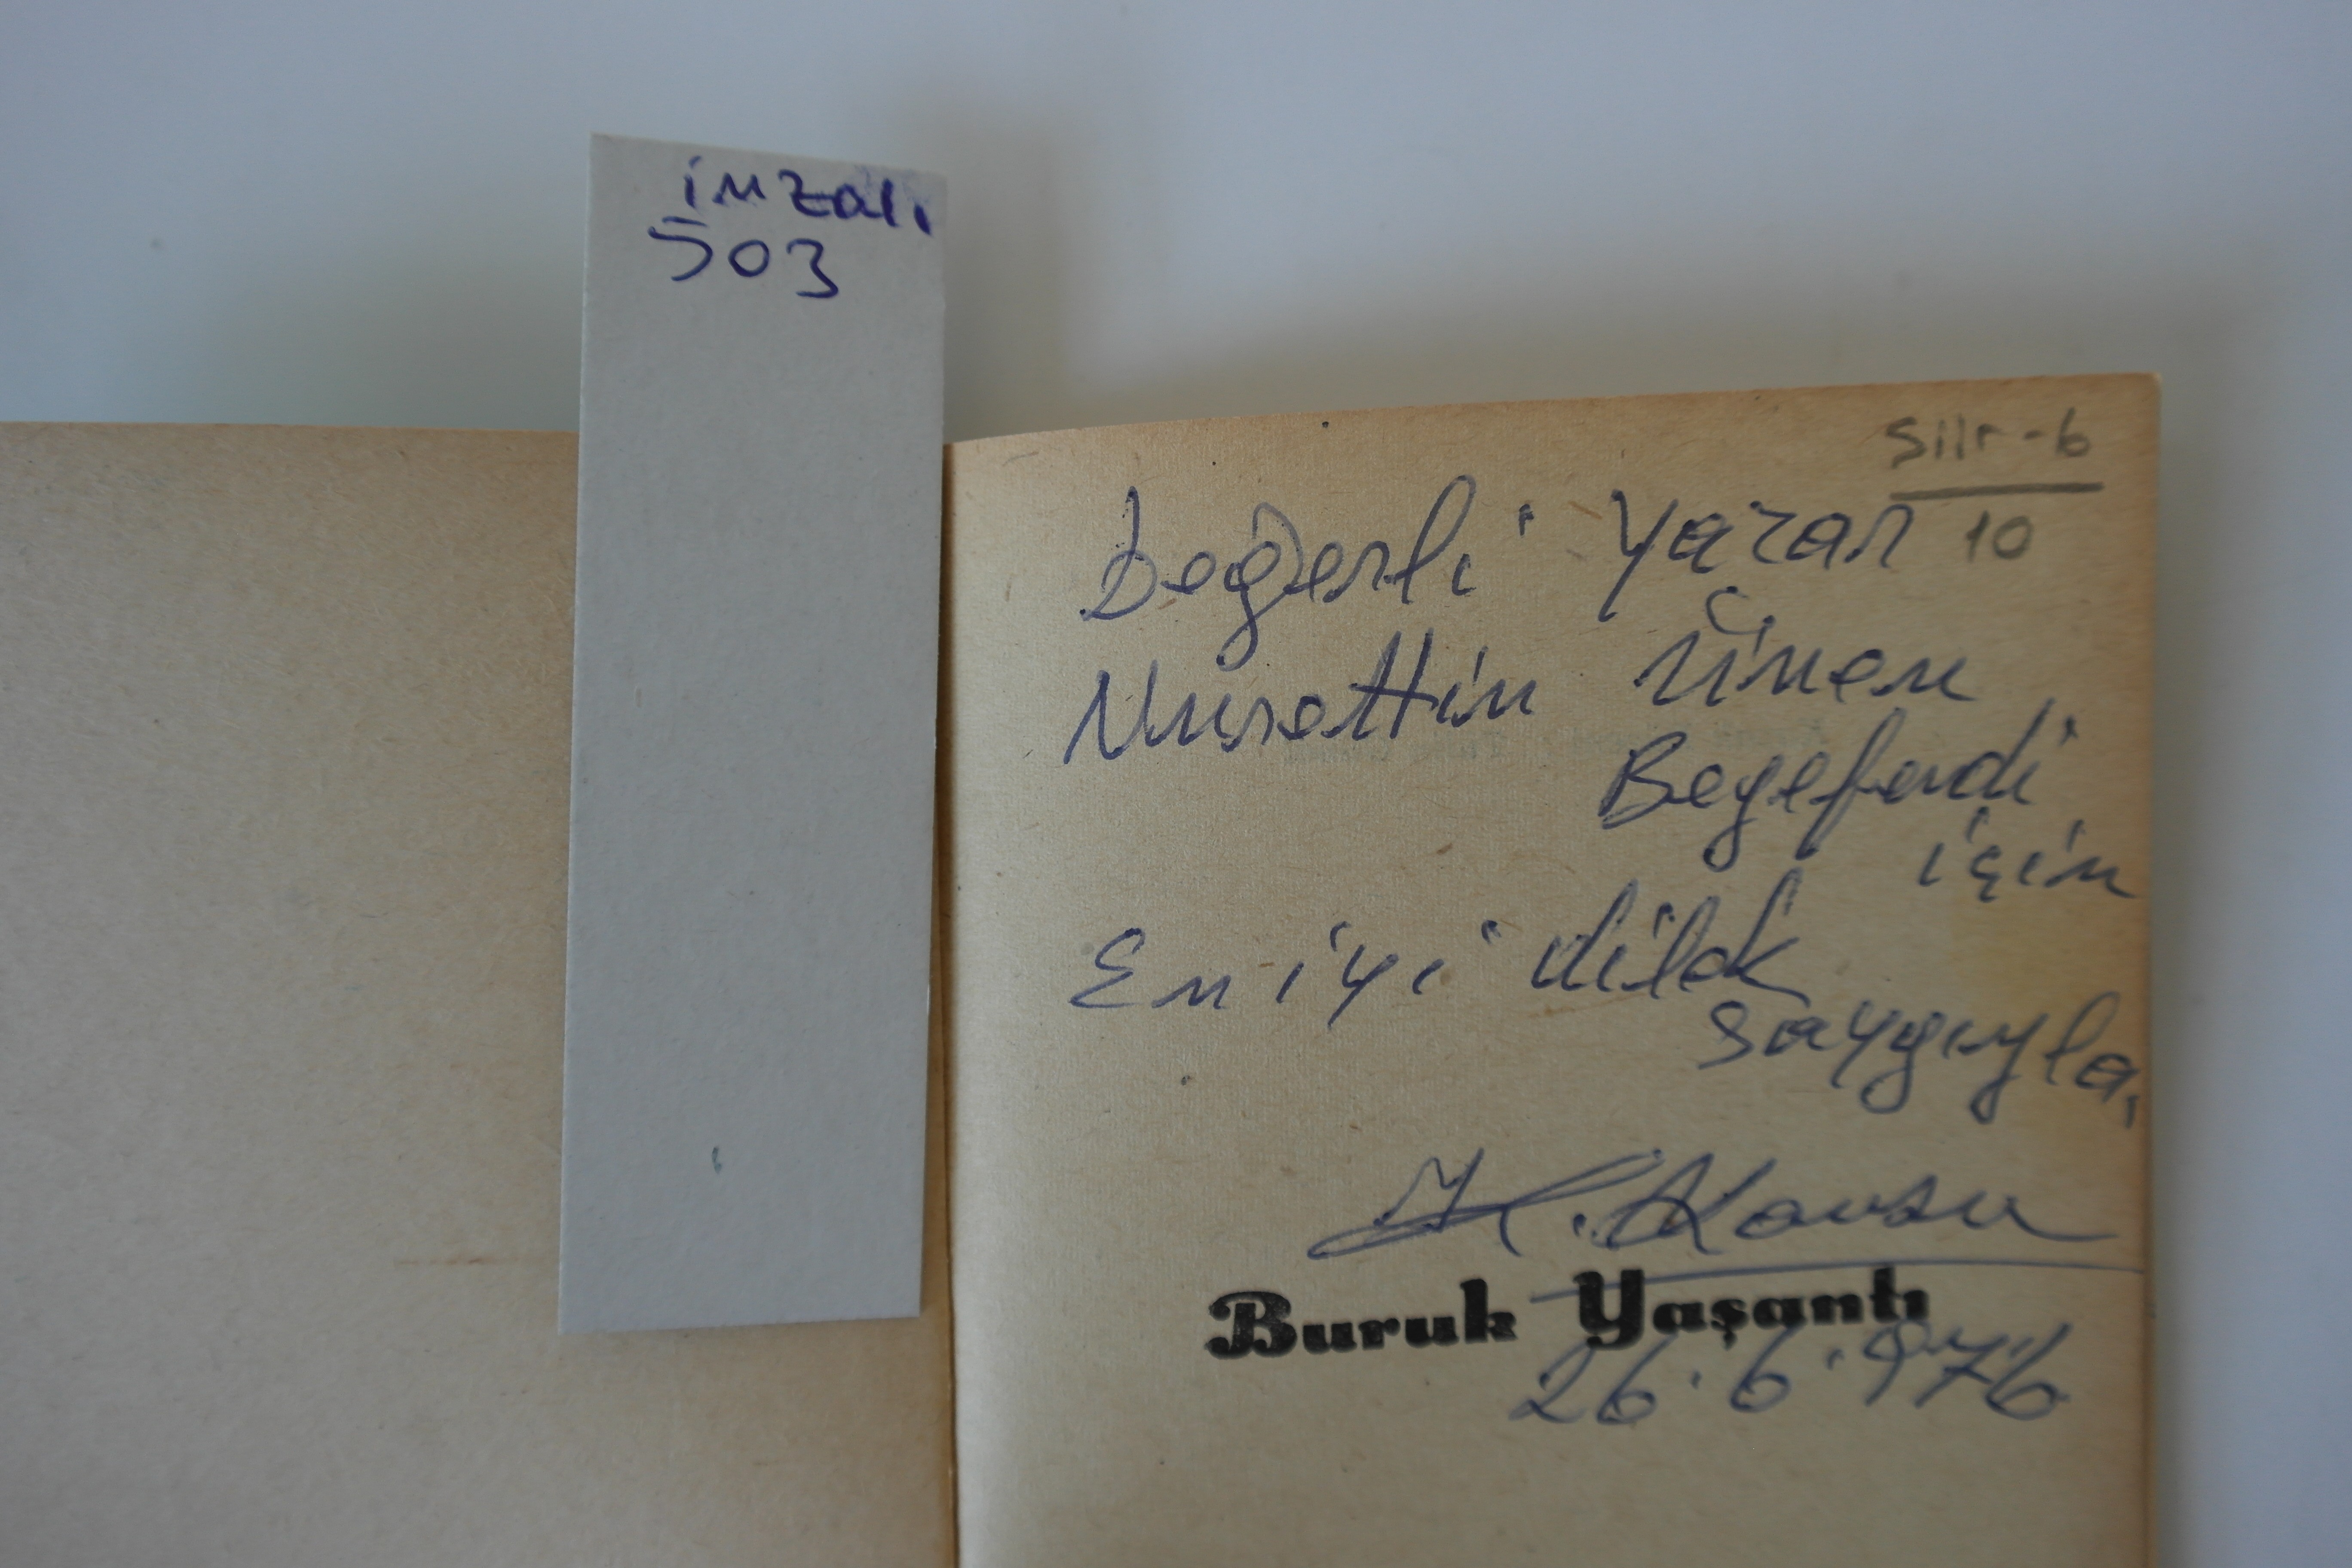 imzalı
503
Siir-b
10
Değerli Yazar
Nurettin Ünen
Beyefendi
için
En iyi dilek
Saygıyla,
Buruk Yaşantı
26.6.976